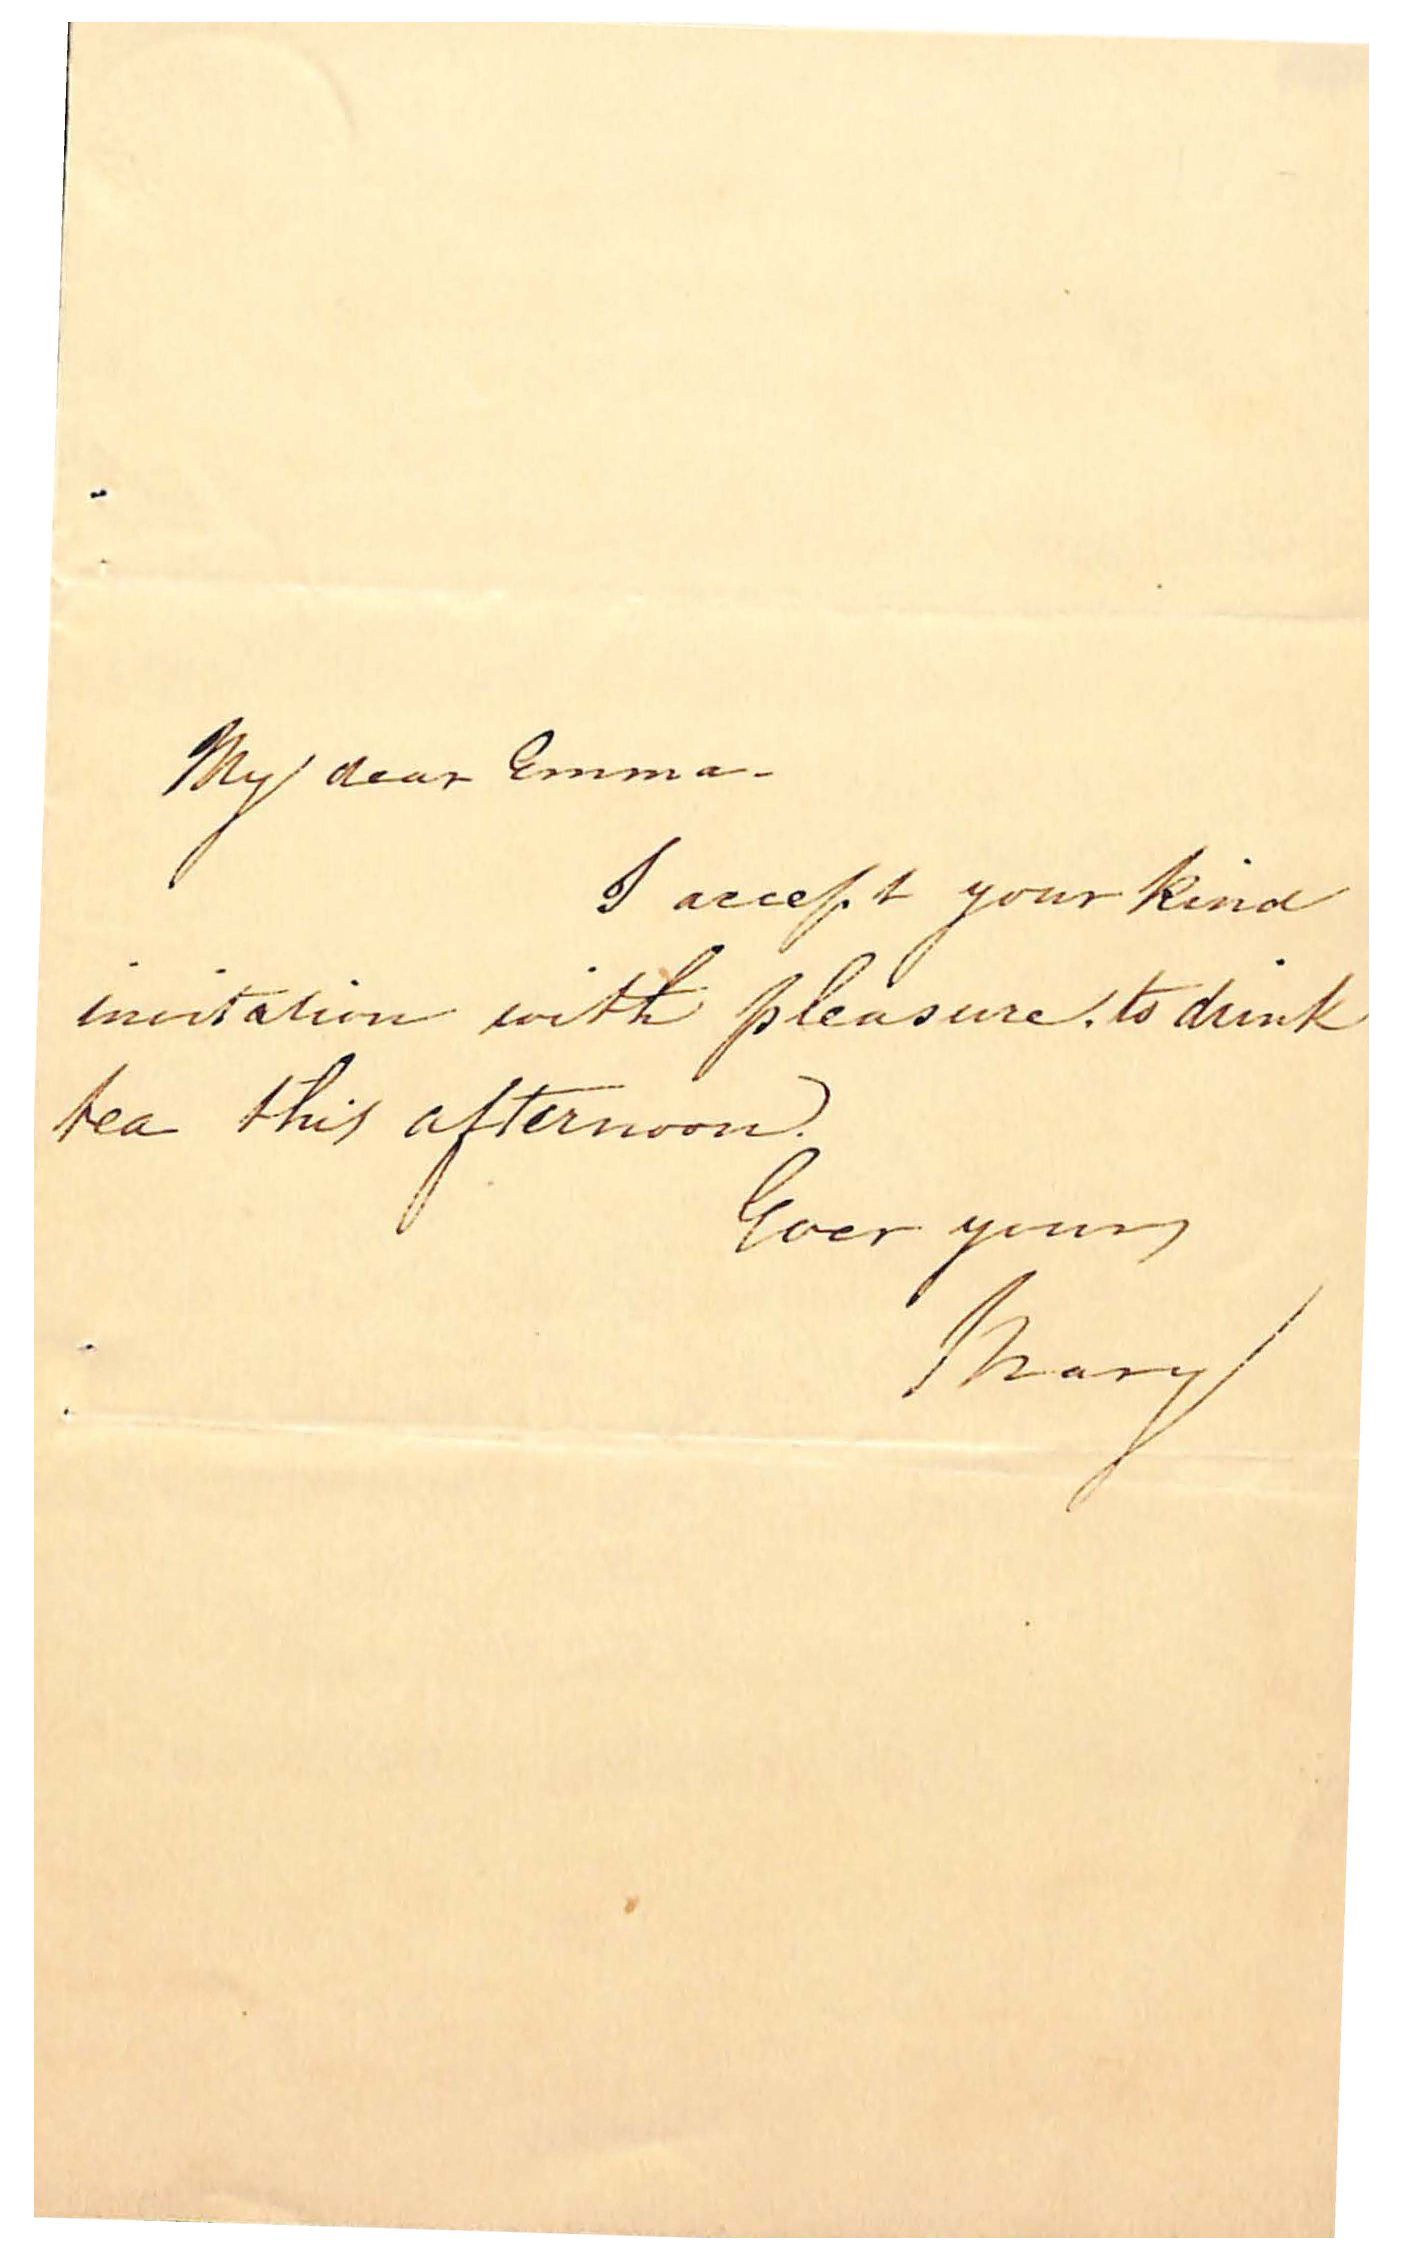 My dear Emma-
I accept your kind
invitation with pleasure. to drink
tea this afternoon.
Ever yours
Mary